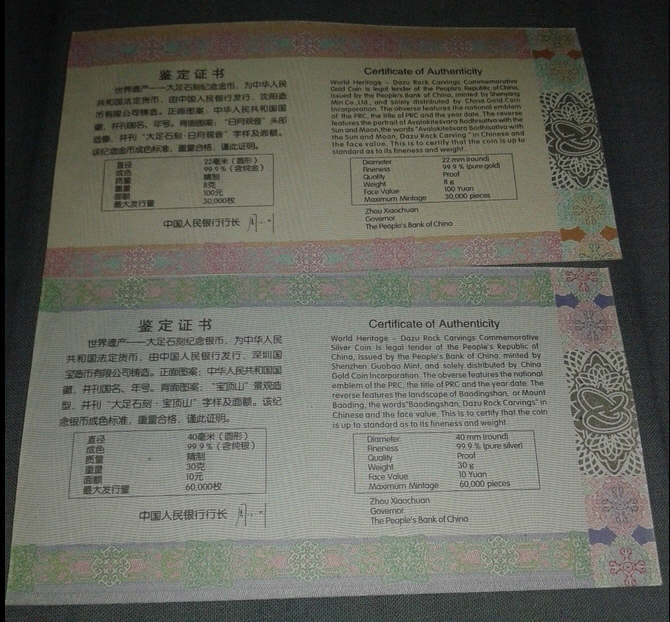 鉴定证书
世界遗产——大足石刻纪念金币，为中华人民
共和国法定货币，由中国人民银行发行，沈阳造
币有限公司铸造。正面图案：中华人民共和国国
徽，并刊国名、年号。背面图案：“日月观音”头部
造像，并刊“大足石刻·日月观音”字样及面额。
该纪念金币成色标准，重量合格，谨此证明。
直径 22毫米（圆形）
成色 99.9%（含纯金）
质量 精制
重量 8克
面额 100元
最大发行量 30,000枚
中国人民银行行长
Certificate of Authenticity
World Heritage – Dazu Rock Carvings Commemorative
Gold Coin is legal tender of the People's Republic of China,
issued by the People's Bank of China, minted by Shenyang
Min Co.,Ltd., and solely distributed by China Gold Coin
Incorporation. The obverse features the national emblem
of the PRC, the title of PRC and the year date. The reverse
features the portrait of Avalokiteśvara Bodhisattva with the
Sun and Moon, the words "Avalokiteśvara Bodhisattva with
the Sun and Moon, Dazu Rock Carving" in Chinese and
the face value. This is to certify that the coin is up to
standard as to its lineness and weight.
Diameter 22 mm (round)
Fineness 99.9 % (pure gold)
Quality Proof
Weight 8 g
Face Value 100 Yuan
Maximum Mintage 30,000 pieces
Zhou Xiaochuan
Governor
The People's Bank of China
鉴定证书
世界遗产——大足石刻纪念银币，为中华人民
共和国法定货币，由中国人民银行发行，深圳国
宝造币有限公司铸造。正面图案：中华人民共和国国
徽，并刊国名、年号。背面图案：“宝顶山”景观造
型，并刊“大足石刻·宝顶山”字样及面额。该纪
念银币成色标准，重量合格，谨此证明。
直径 40毫米（圆形）
成色 99.9%（含纯银）
质量 精制
重量 30克
面额 10元
最大发行量 60,000枚
中国人民银行行长
Certificate of Authenticity
World Heritage – Dazu Rock Carvings Commemorative
Silver Coin is legal tender of the People's Republic of
China, issued by the People's Bank of China, minted by
Shenzhen Guobao Mint, and solely distributed by China
Gold Coin Incorporation. The obverse features the national
emblem of the PRC, the title of PRC and the year date. The
reverse features the landscape of Baodingshan, or Mount
Baoding, the words"Baodingshan, Dazu Rock Carvings" in
Chinese and the face value. This is to certify that the coin
is up to standard as to its lineness and weight
Diameter 40 mm (round)
Fineness 99.9 % (pure silver)
Quality Proof
Weight 30 g
Face Value 10 Yuan
Maximum Mintage 60,000 pieces
Zhou Xiaochuan
Governor
The People's Bank of China